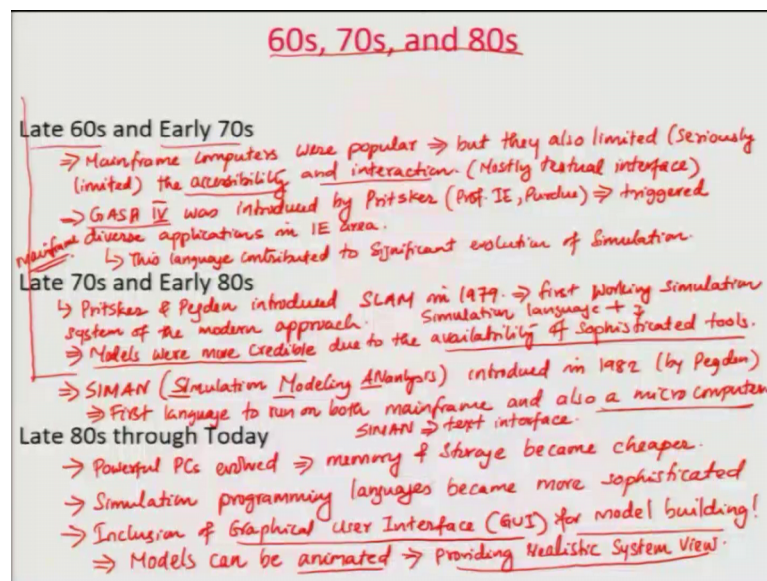 60s, 70s, and 80s
Late 60s and Early 70s
⇒ Mainframe computers were popular ⇒ but they also limited (Seriously
limited) the accessibility and interaction. (Mostly textual interface)
→ GASP IV was introduced by Pritsker (Prof. IE, Purdue) ⇒ triggered
diverse applications in IE area.
mainframe ↳ This language contributed to Significant evolution of Simulation.
Late 70s and Early 80s
↳ Pritsker & Pegden introduced SLAM in 1979. ⇒ first working simulation
system of the modern approach. Simulation language +
⇒ Models were more credible due to the availability of sophisticated tools.
⇒ SIMAN (SImulation Modeling ANanlysis) introdued in 1982 (by Pegden)
⇒ First language to run on both mainframe and also a micro computer
SIMAN ⇒ text interface.
Late 80s through Today
→ Powerful PCs evolved ⇒ memory & storage became cheaper.
→ Simulation programming languages became more sophisticated
→ Inclusion of Graphical User Interface (GUI) for model building!
⇒ Models can be animated → Providing Realistic System View.